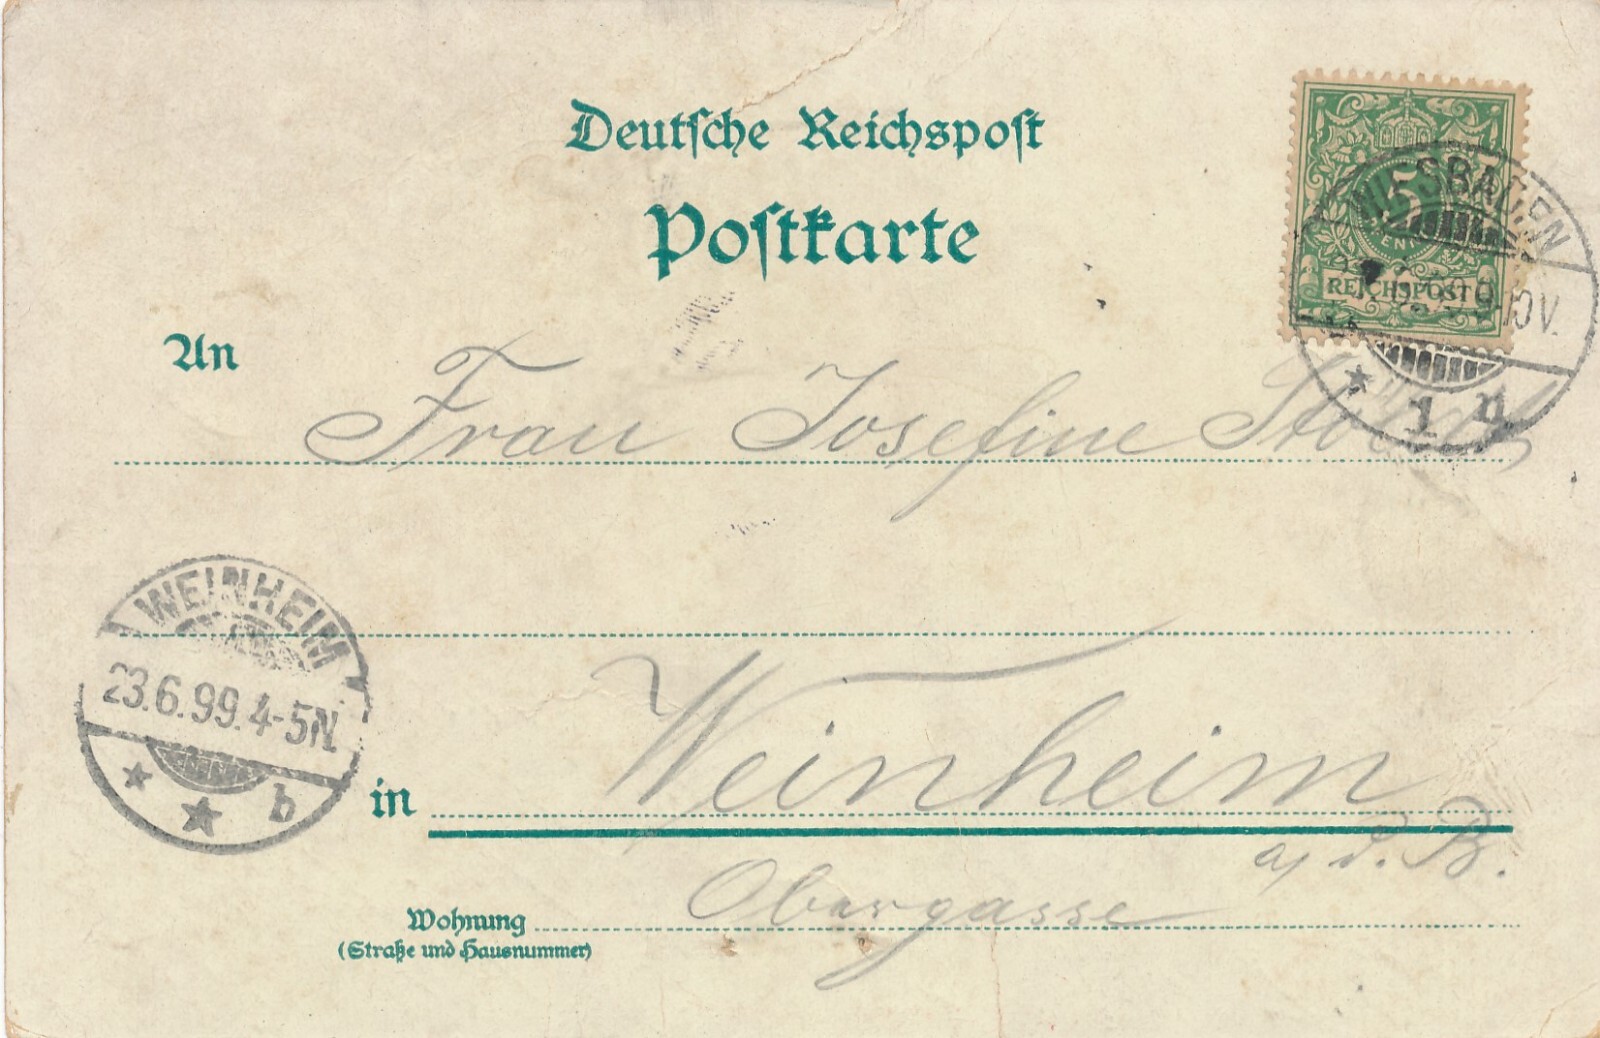 Deutsche Reichspost
Postkarte
5
REICHSPOST
WIESBADEN
9-10V.
1 n
An Frau Josefine
WEINHEIM
23.6.99.4-5N.
b
in Weinheim
a/d. B.
Wohnung Obergasse
(Straße und Hausnummer)